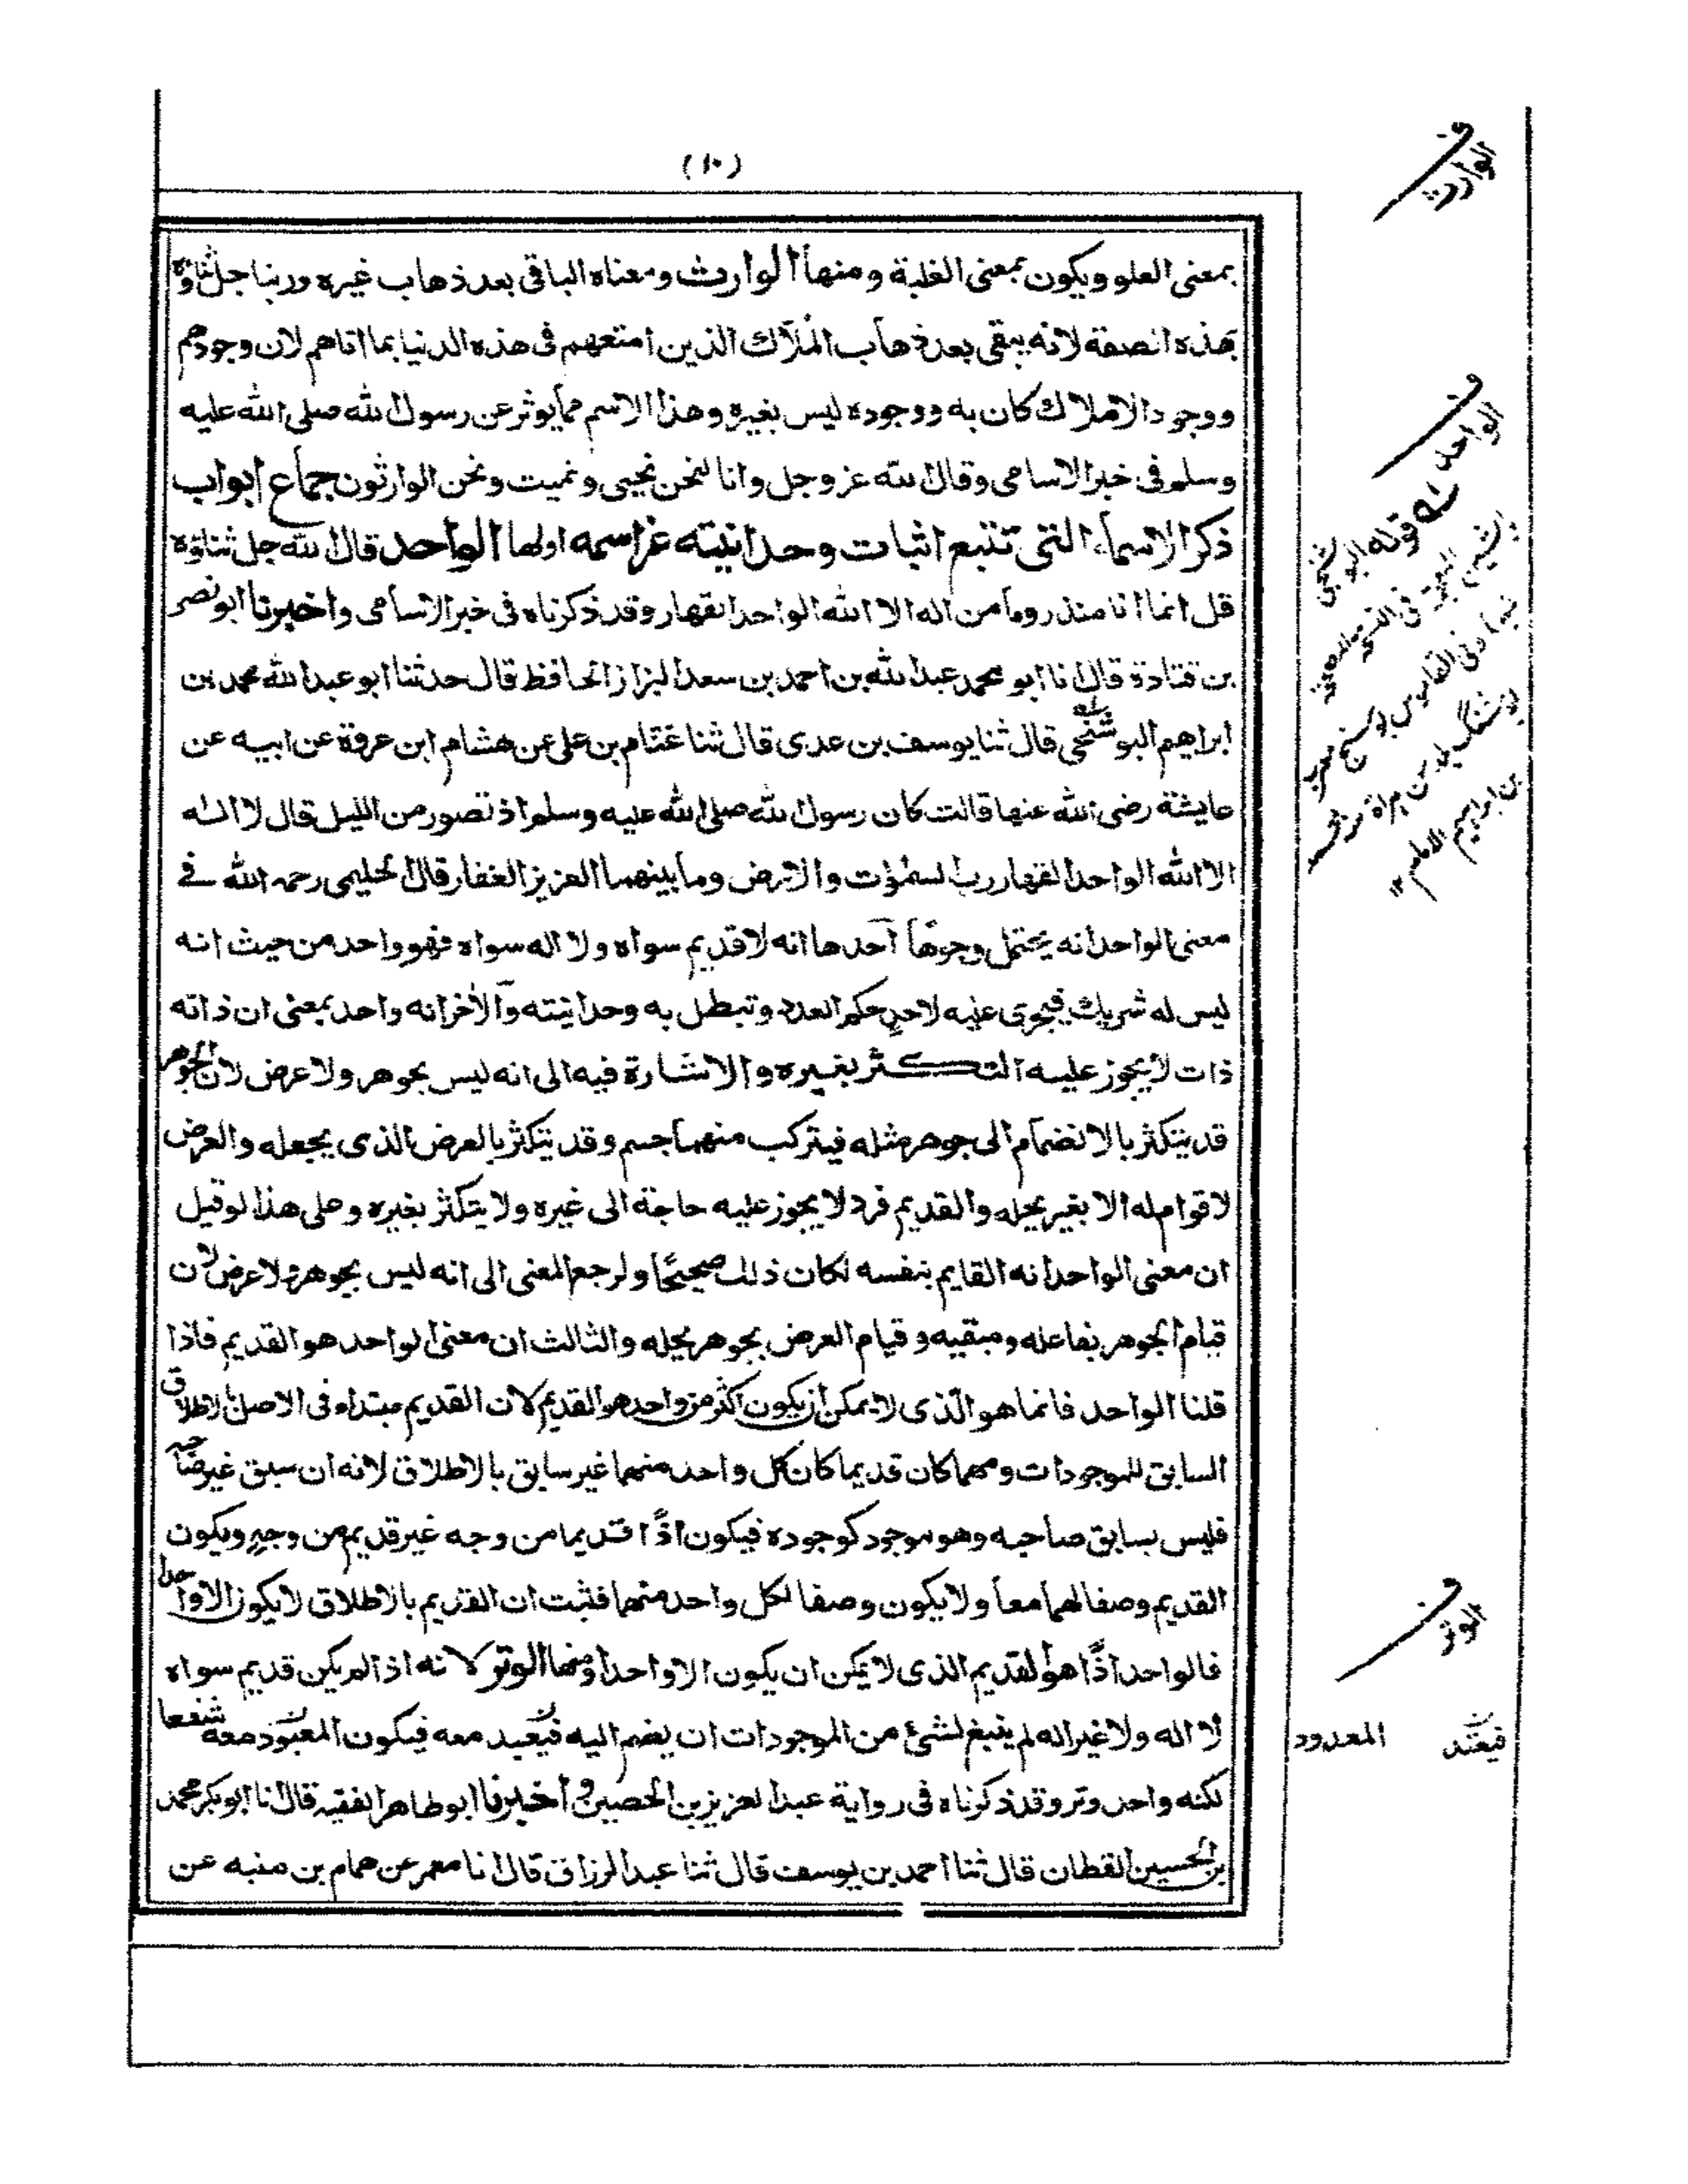 (١٠)
بمعنى العلو ويكون بمعنى الغلبة ومنها الوارث ومعناه الباقى بعد ذهاب غيره وربنا جل ثناؤه
بهذه الصفة لانه يبقى بعد ذهاب الملاك الذين امتعهم فى هذه الدنيا بما اتاهم لان وجودهم
ووجود الاملاك كان به ووجوده ليس بغيره وهذا الاسم مما يوثر عن رسول الله صلى الله عليه
وسلم فى خبر الاسامى وقال الله عز وجل وانا لنحن نحيى ونميت ونحن الوارثون جماع ابواب
ذكر الاسماء التى تتبع اثبات وحدانيته عز اسمه اولها الواحد قال الله جل ثناؤه
قل انما انا منذر وما من اله الا الله الواحد القهار وقد ذكرناه فى خبر الاسامى واخبرنا ابو نصر
بن قتادة قال انا ابو محمد عبد الله بن احمد بن سعد البزاز الحافظ قال حدثنا ابو عبد الله محمد بن
ابراهيم البوشنجى قال ثنا يوسف بن عدى قال ثنا غثام بن على عن هشام ابن عروة عن ابيه عن
عايشة رضى الله عنها قالت كان رسول الله صلى الله عليه وسلم اذ تصور من الليل قال لا اله
الا الله الواحد القهار رب السمٰوٰت والارض وما بينهما العزيز الغفار قال الحليمى رحمه الله فى
معنى الواحد انه يحتمل وجوها احدها انه لا قديم سواه ولا اله سواه فهو واحد من حيث انه
ليس له شريك فيجرى عليه لاحدٍ حكم العدد وتبطل به وحدانيته والآخر انه واحد بمعنى ان ذاته
ذات لا يجوز عليه التكثر بغيره والاشارة فيه الى انه ليس بجوهر ولا عرض لان الجوهر
قد يتكثر بالانضمام الى جوهر مثله فيتركب منهما جسم وقد يتكثر بالعرض الذى يجعله والعرض
لا قوام له الا بغير يحله والقديم فرد لا يجوز عليه حاجة الى غيره ولا يتكثر بغيره وعلى هذا لو قيل
ان معنى الواحد انه القايم بنفسه لكان ذلك صحيحًا ولرجع المعنى الى انه ليس بجوهر ولا عرض لان
قيام الجوهر بفاعله ومبقيه وقيام العرض بجوهر يحله والثالث ان معنى الواحد هو القديم فاذا
قلنا الواحد فانما هو الّذى لا يمكن ان يكون اكثر من واحد هو القديم لان القديم مبتداء فى الاصل بالاطلاق
السابق للموجودات ومهما كان قديما كان كل واحد منهما غير سابق بالاطلاق لانه ان سبق غير صاحبه
فليس بسابق صاحبه وهو موجود كوجوده فيكون اذًا قديما من وجه غير قديم من وجهٍ ويكون
القديم وصفا لهما معا ولا يكون وصفا لكل واحد منهما فثبت ان القديم بالاطلاق لا يكون الا واحدا
فالواحد اذًا هو القديم الذى لا يمكن ان يكون الا واحدا ومنها الوتر لانه اذ لم يكن قديم سواه
لا اله ولا غير اله لم ينبغ لشئ من الموجودات ان يضم اليه فيعبد معه فيكون المعبود معه شفعا
لكنه واحد وتر وقد ذكرناه فى رواية عبد العزيز بن الحصين واخبرنا ابو طاهر الفقيه قال انا ابو بكر محمد
بن الحسين القطان قال ثنا احمد بن يوسف قال ثنا عبد الرزاق قال انا معمر عن همام بن منبه عن
الوارث
الواحد
قوله البوشنجى
بن ابراهيم الامام ١٢
الوتر
فيعتد المعدود